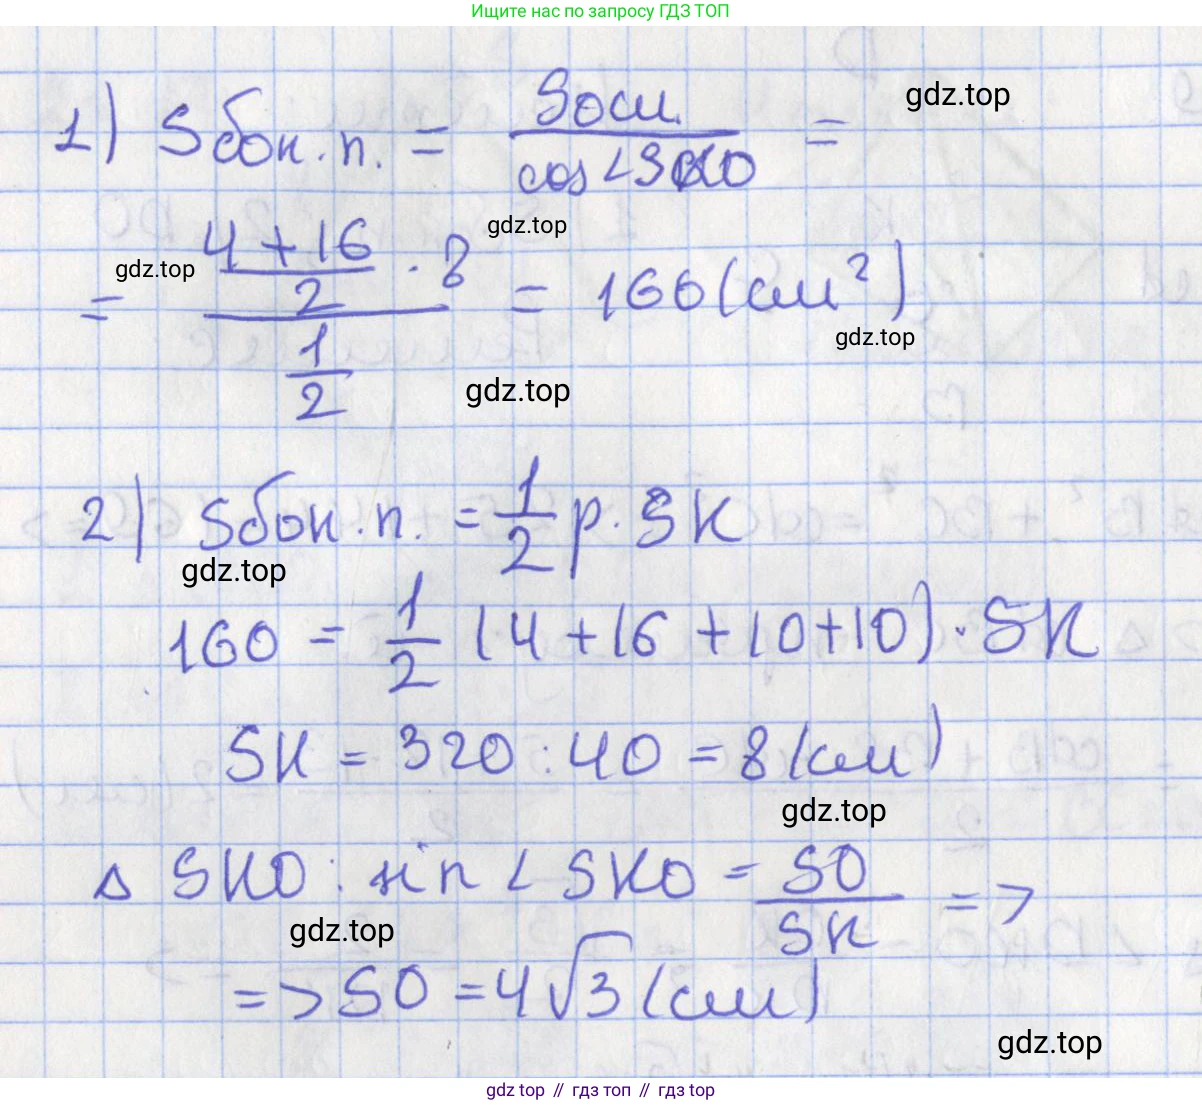 Ищите нас по запросу ГДЗ ТОП
1) Sбок.п. = Sосн. / cos∠SKO =
gdz.top
gdz.top
gdz.top
= ((4+16)/2 · 8) / (1/2) = 160 (см²)
gdz.top
gdz.top
2) Sбок.п. = 1/2 p · SK
gdz.top
160 = 1/2 (4+16+10+10) · SK
SK = 320 : 40 = 8 (см)
gdz.top
Δ SKO : sin ∠SKO = SO/SK =>
gdz.top
=> SO = 4√3 (см)
gdz.top
gdz top // гдз топ // гдз top